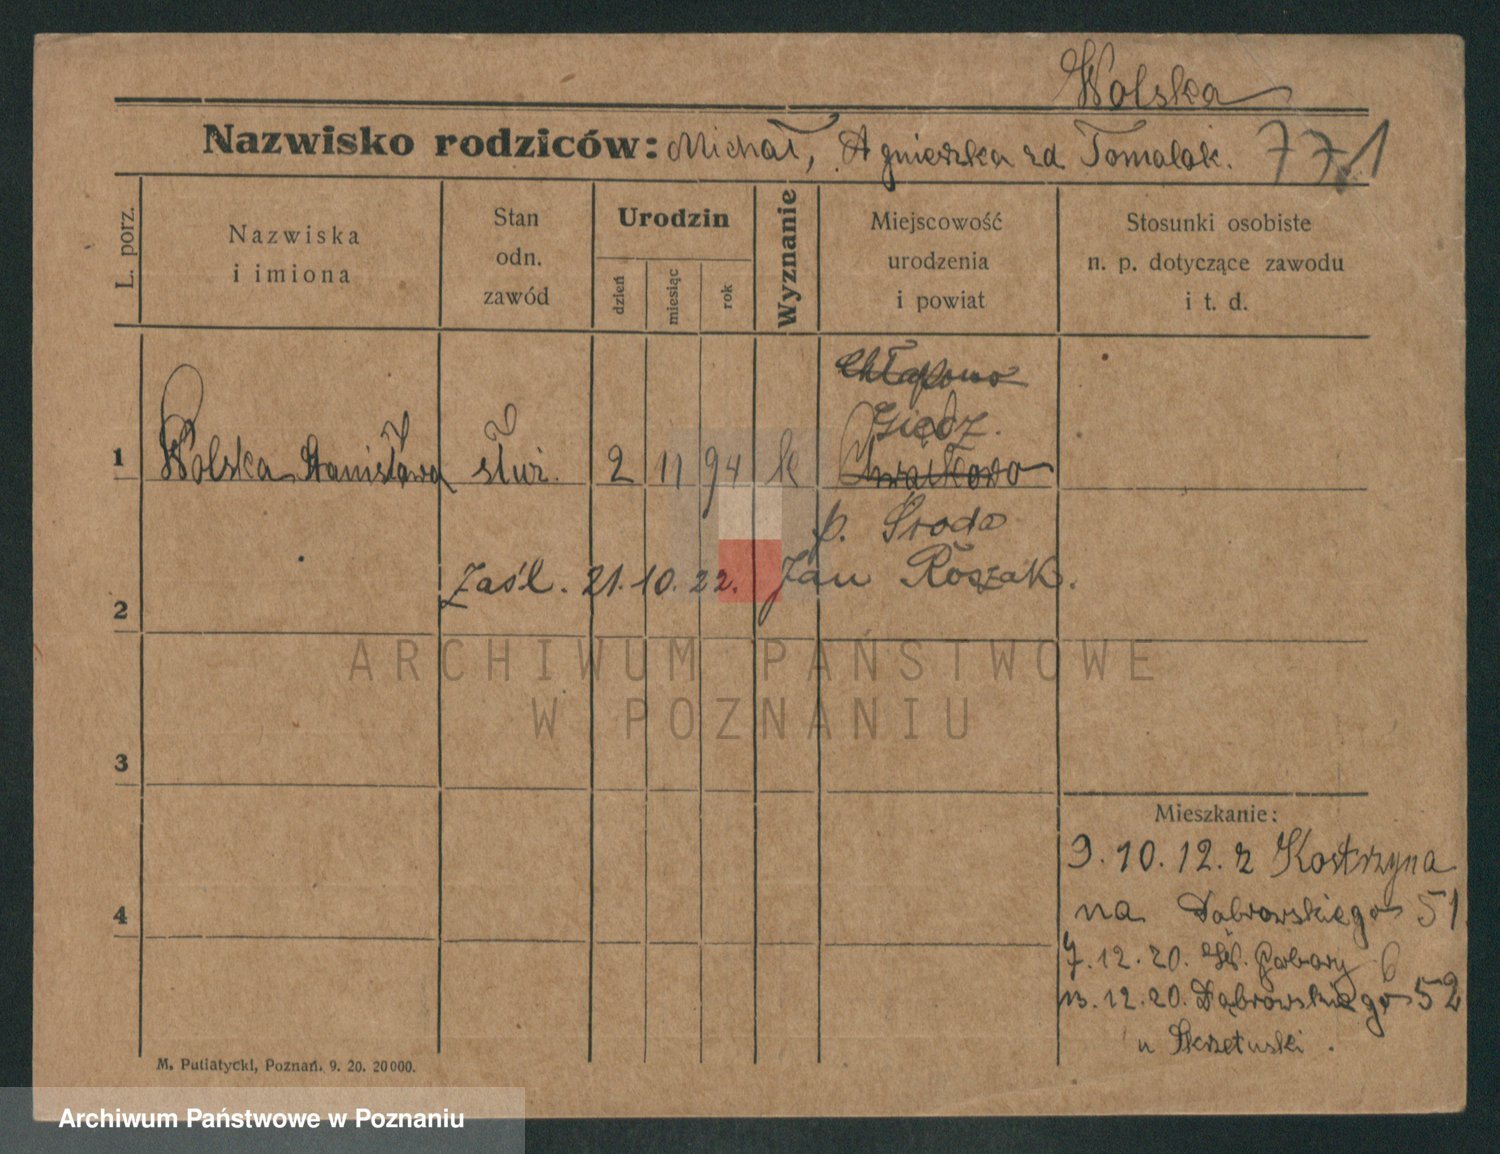 Wolska
Nazwisko rodziców: Michał, Agnieszka zd Tomalak. 771
L. porz.
Nazwiska
i imiona
Stan
odn.
zawód
Urodzin
dzień
miesiąc
rok
Wyznanie
Miejscowość
urodzenia
i powiat
Stosunki osobiste
n. p. dotyczące zawodu
i t. d.
Chłapowo
Giedz.
1 Wolska Stanisława służ. 2 11 94 k Chwałkowo
p. Środa
2 Zaśl. 21.10.22. Jan Roszak.
ARCHIWUM PAŃSTWOWE
W POZNANIU
3
Mieszkanie:
9.10.12. z Kostrzyna
4 na Dąbrowskiego 51
7.12.20. W. Garbary 6
13.12.20. Dąbrowskiego 52
u Skrzetuski.
M. Putiatycki, Poznań. 9. 20. 20000.
Archiwum Państwowe w Poznaniu